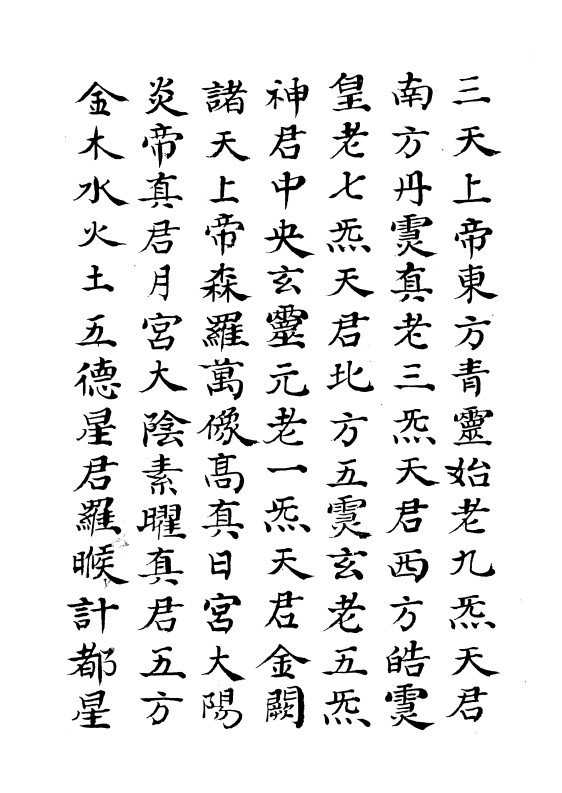 三天上帝東方青靈始老九炁天君
南方丹霊真老三炁天君西方皓霊
皇老七炁天君北方五霊玄老五炁
神君中央玄靈元老一炁天君金闕
諸天上帝森羅萬像高真日宮大陽
炎帝真君月宮大陰素曜真君五方
金木水火土五德星君羅睺計都星